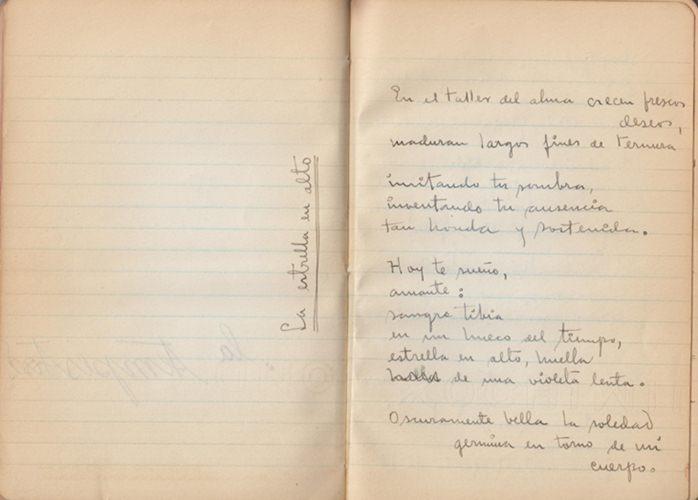 La estrella en alto
En el taller del alma crecen frescos
deseos,
maduran largos fines de ternura
imitando tu sombra,
inventando tu ausencia
tan honda y sostenida.
Hoy te sueño,
amante:
sangre tibia
en un hueco del tiempo,
estrella en alto, huella
de una violeta lenta.
Oscuramente bella la soledad
germina en torno de mi
cuerpo.